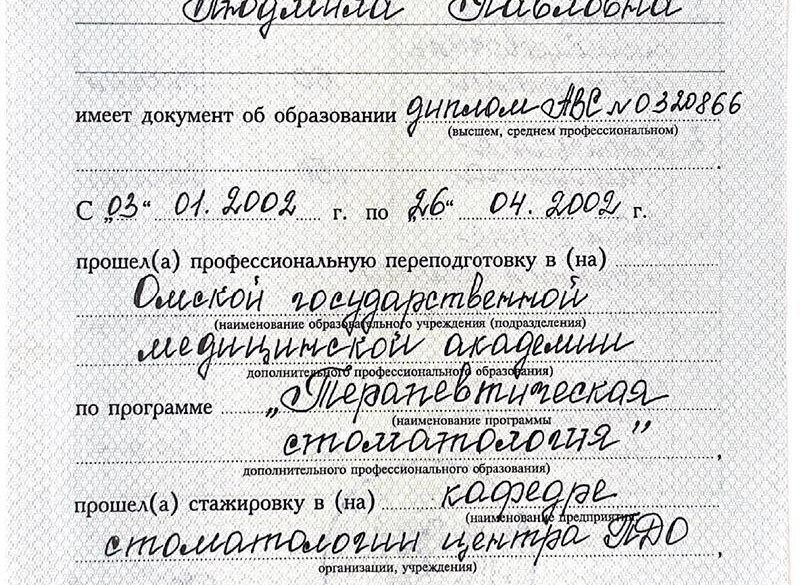 Людмила Павловна
имеет документ об образовании диплом АВС № 0320866
(высшем, среднем профессиональном)
С „03“ 01. 2002 г. по „26“ 04. 2002 г.
прошел(а) профессиональную переподготовку в (на)
Омской государственной
(наименование образовательного учреждения (подразделения)
медицинской академии
дополнительного профессионального образования)
по программе „Терапевтическая
(наименование программы
стоматология”,
дополнительного профессионального образования)
прошел(а) стажировку в (на) кафедре
(наименование предприятия,
стоматологии центра ПДО,
организации, учреждения)